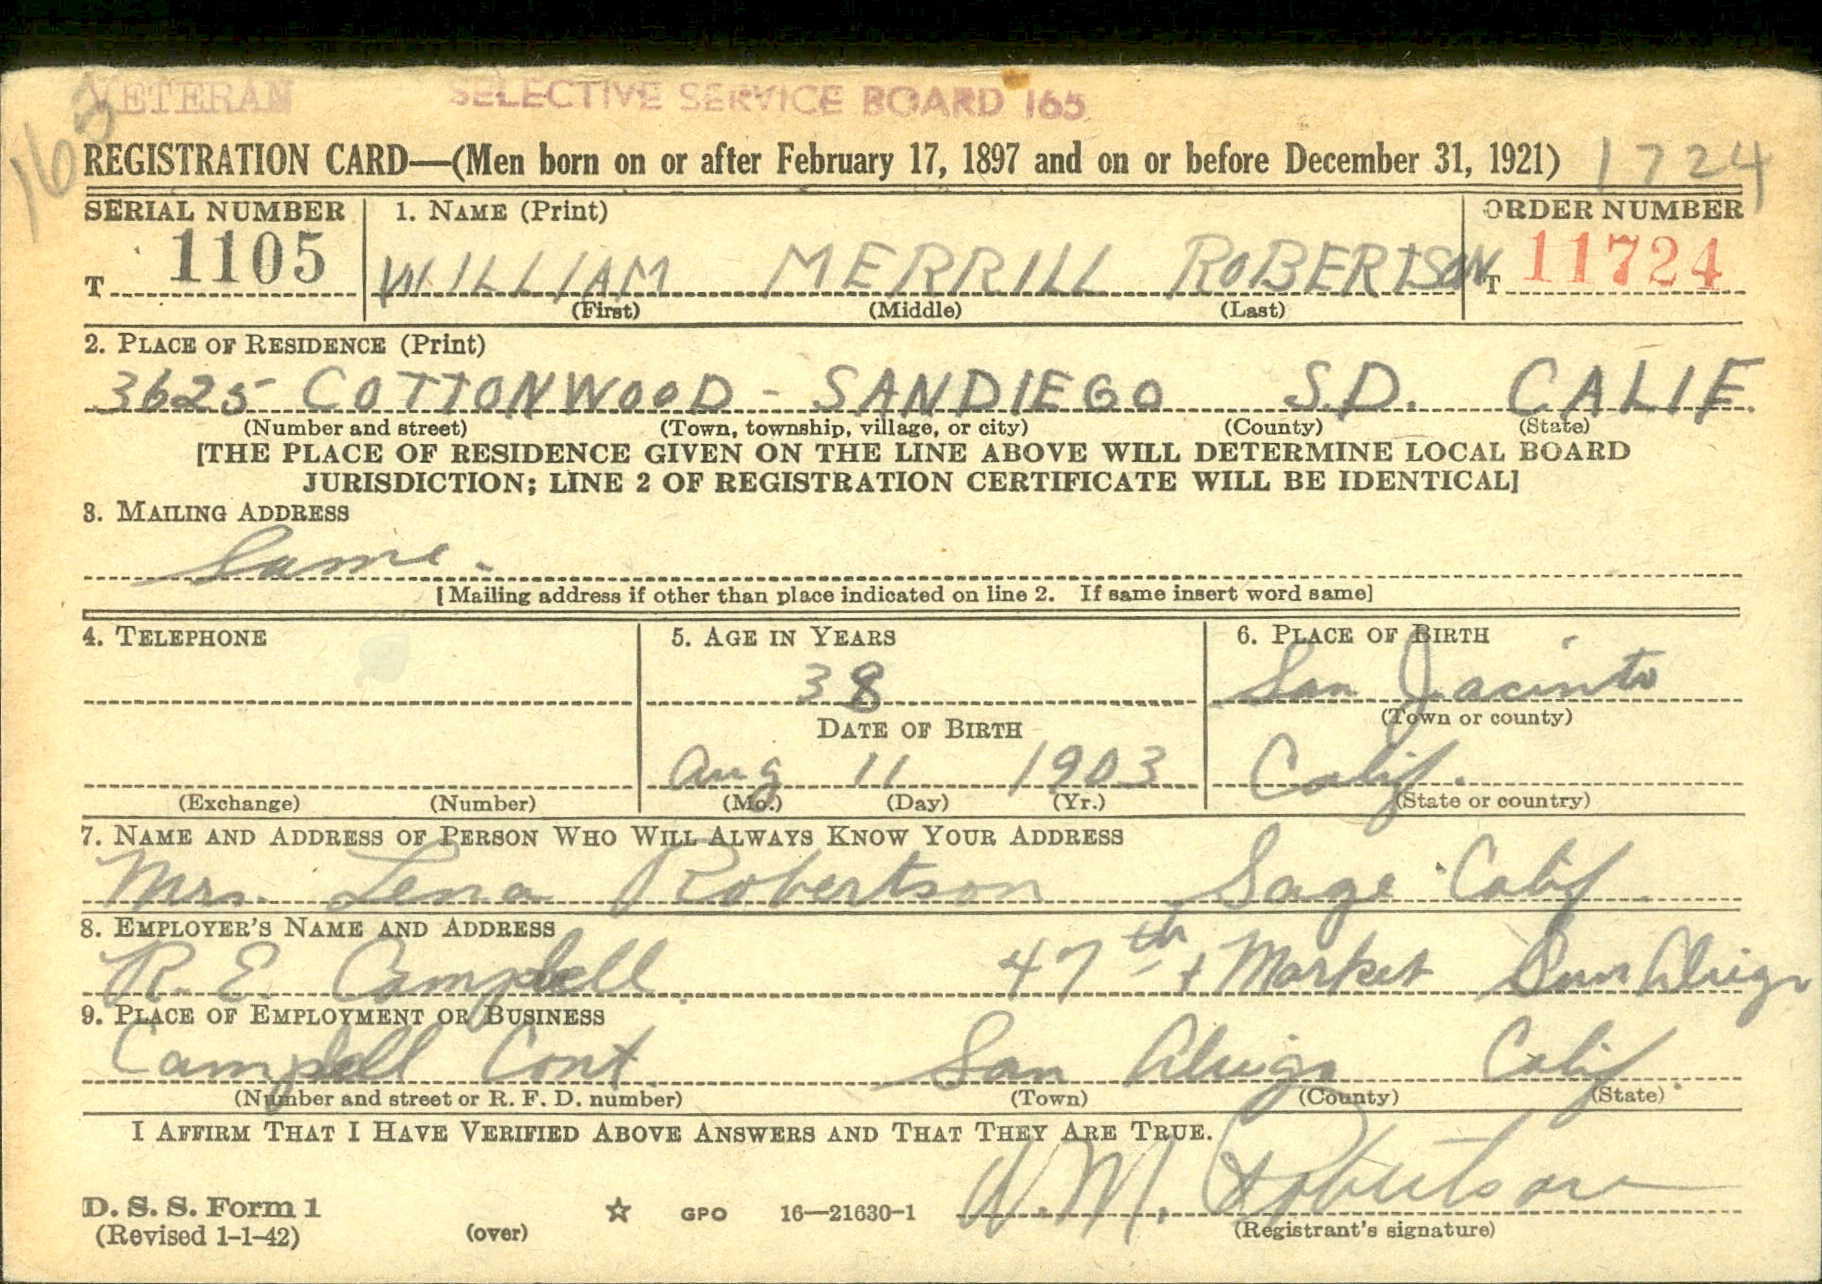 VETERAN SELECTIVE SERVICE BOARD 165
165
REGISTRATION CARD—(Men born on or after February 17, 1897 and on or before December 31, 1921) 1724
SERIAL NUMBER 1. NAME (Print) ORDER NUMBER
T 1105 WILLIAM MERRILL ROBERTSON T 11724
(First) (Middle) (Last)
2. PLACE OF RESIDENCE (Print)
3625 COTTONWOOD - SANDIEGO S.D. CALIF.
(Number and street) (Town, township, village, or city) (County) (State)
[THE PLACE OF RESIDENCE GIVEN ON THE LINE ABOVE WILL DETERMINE LOCAL BOARD
JURISDICTION; LINE 2 OF REGISTRATION CERTIFICATE WILL BE IDENTICAL]
3. MAILING ADDRESS
Same.
[Mailing address if other than place indicated on line 2. If same insert word same]
4. TELEPHONE 5. AGE IN YEARS 6. PLACE OF BIRTH
38 San Jacinto
(Town or county)
DATE OF BIRTH
Aug 11 1903 Calif.
(Exchange) (Number) (Mo.) (Day) (Yr.) (State or country)
7. NAME AND ADDRESS OF PERSON WHO WILL ALWAYS KNOW YOUR ADDRESS
Mrs. Lena Robertson Sage Calif.
8. EMPLOYER'S NAME AND ADDRESS
R. E. Campbell. 47th + Market San Diego
9. PLACE OF EMPLOYMENT OR BUSINESS
Campbell Cont. San Diego Calif.
(Number and street or R. F. D. number) (Town) (County) (State)
I AFFIRM THAT I HAVE VERIFIED ABOVE ANSWERS AND THAT THEY ARE TRUE.
W. M. Robertson
D. S. S. Form 1
(Revised 1-1-42) (over) ☆ GPO 16—21630-1 (Registrant's signature)